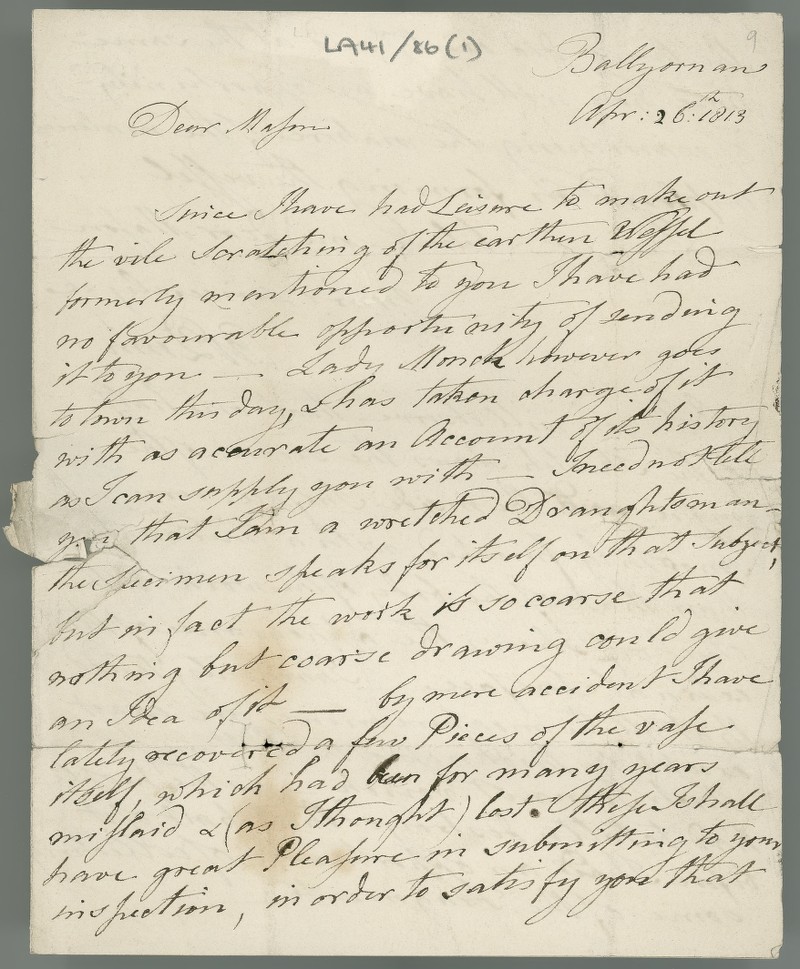 LA41/86(1)
9
Ballyornan
Apr: 26:th 1813
Dear Mason
Since I have had Leisure to make out
the vile Scratching of the earthen Vessel
formerly mentioned to you I have had
no favourable opportunity of sending
it to you — Lady Monck however goes
to town this day, & has taken charge of it
with as accurate an Account of its history
as I can supply you with — I need not tell
you that I am a wretched Draughtsman–
the Specimen speaks for itself on that Subject,
but in fact the work is so coarse that
nothing but coarse drawing could give
an Idea of it — by mere accident I have
lately recovered a few Pieces of the vase
itself, which had been for many years
mislaid & (as I thought) lost. these I shall
have great Pleasure in submitting to your
inspection, in order to satisfy you that